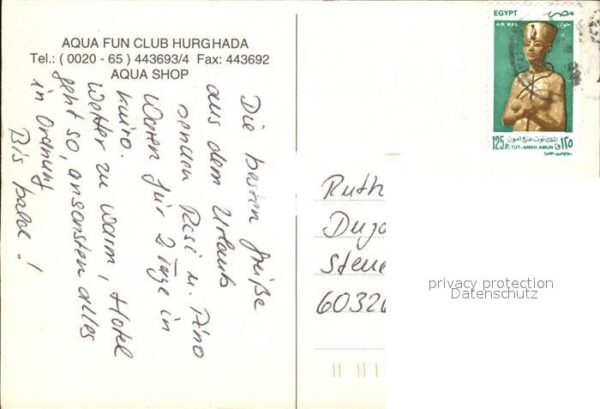 AQUA FUN CLUB HURGHADA
Tel.: ( 0020 - 65 ) 443693/4 Fax: 443692
AQUA SHOP
Die besten Grüße
aus dem Urlaub
senden Resi u. Tino
Waren für 2 Tage in
Kairo.
Wetter zu warm, Hotel
geht so, ansonsten alles
in Ordnung
Bis bald!
EGYPT مصر
AIR MAIL
125 P. TUT-ANKH AMUN ١٢٥
Ruth
Dujo
Steue
60326
privacy protection
Datenschutz